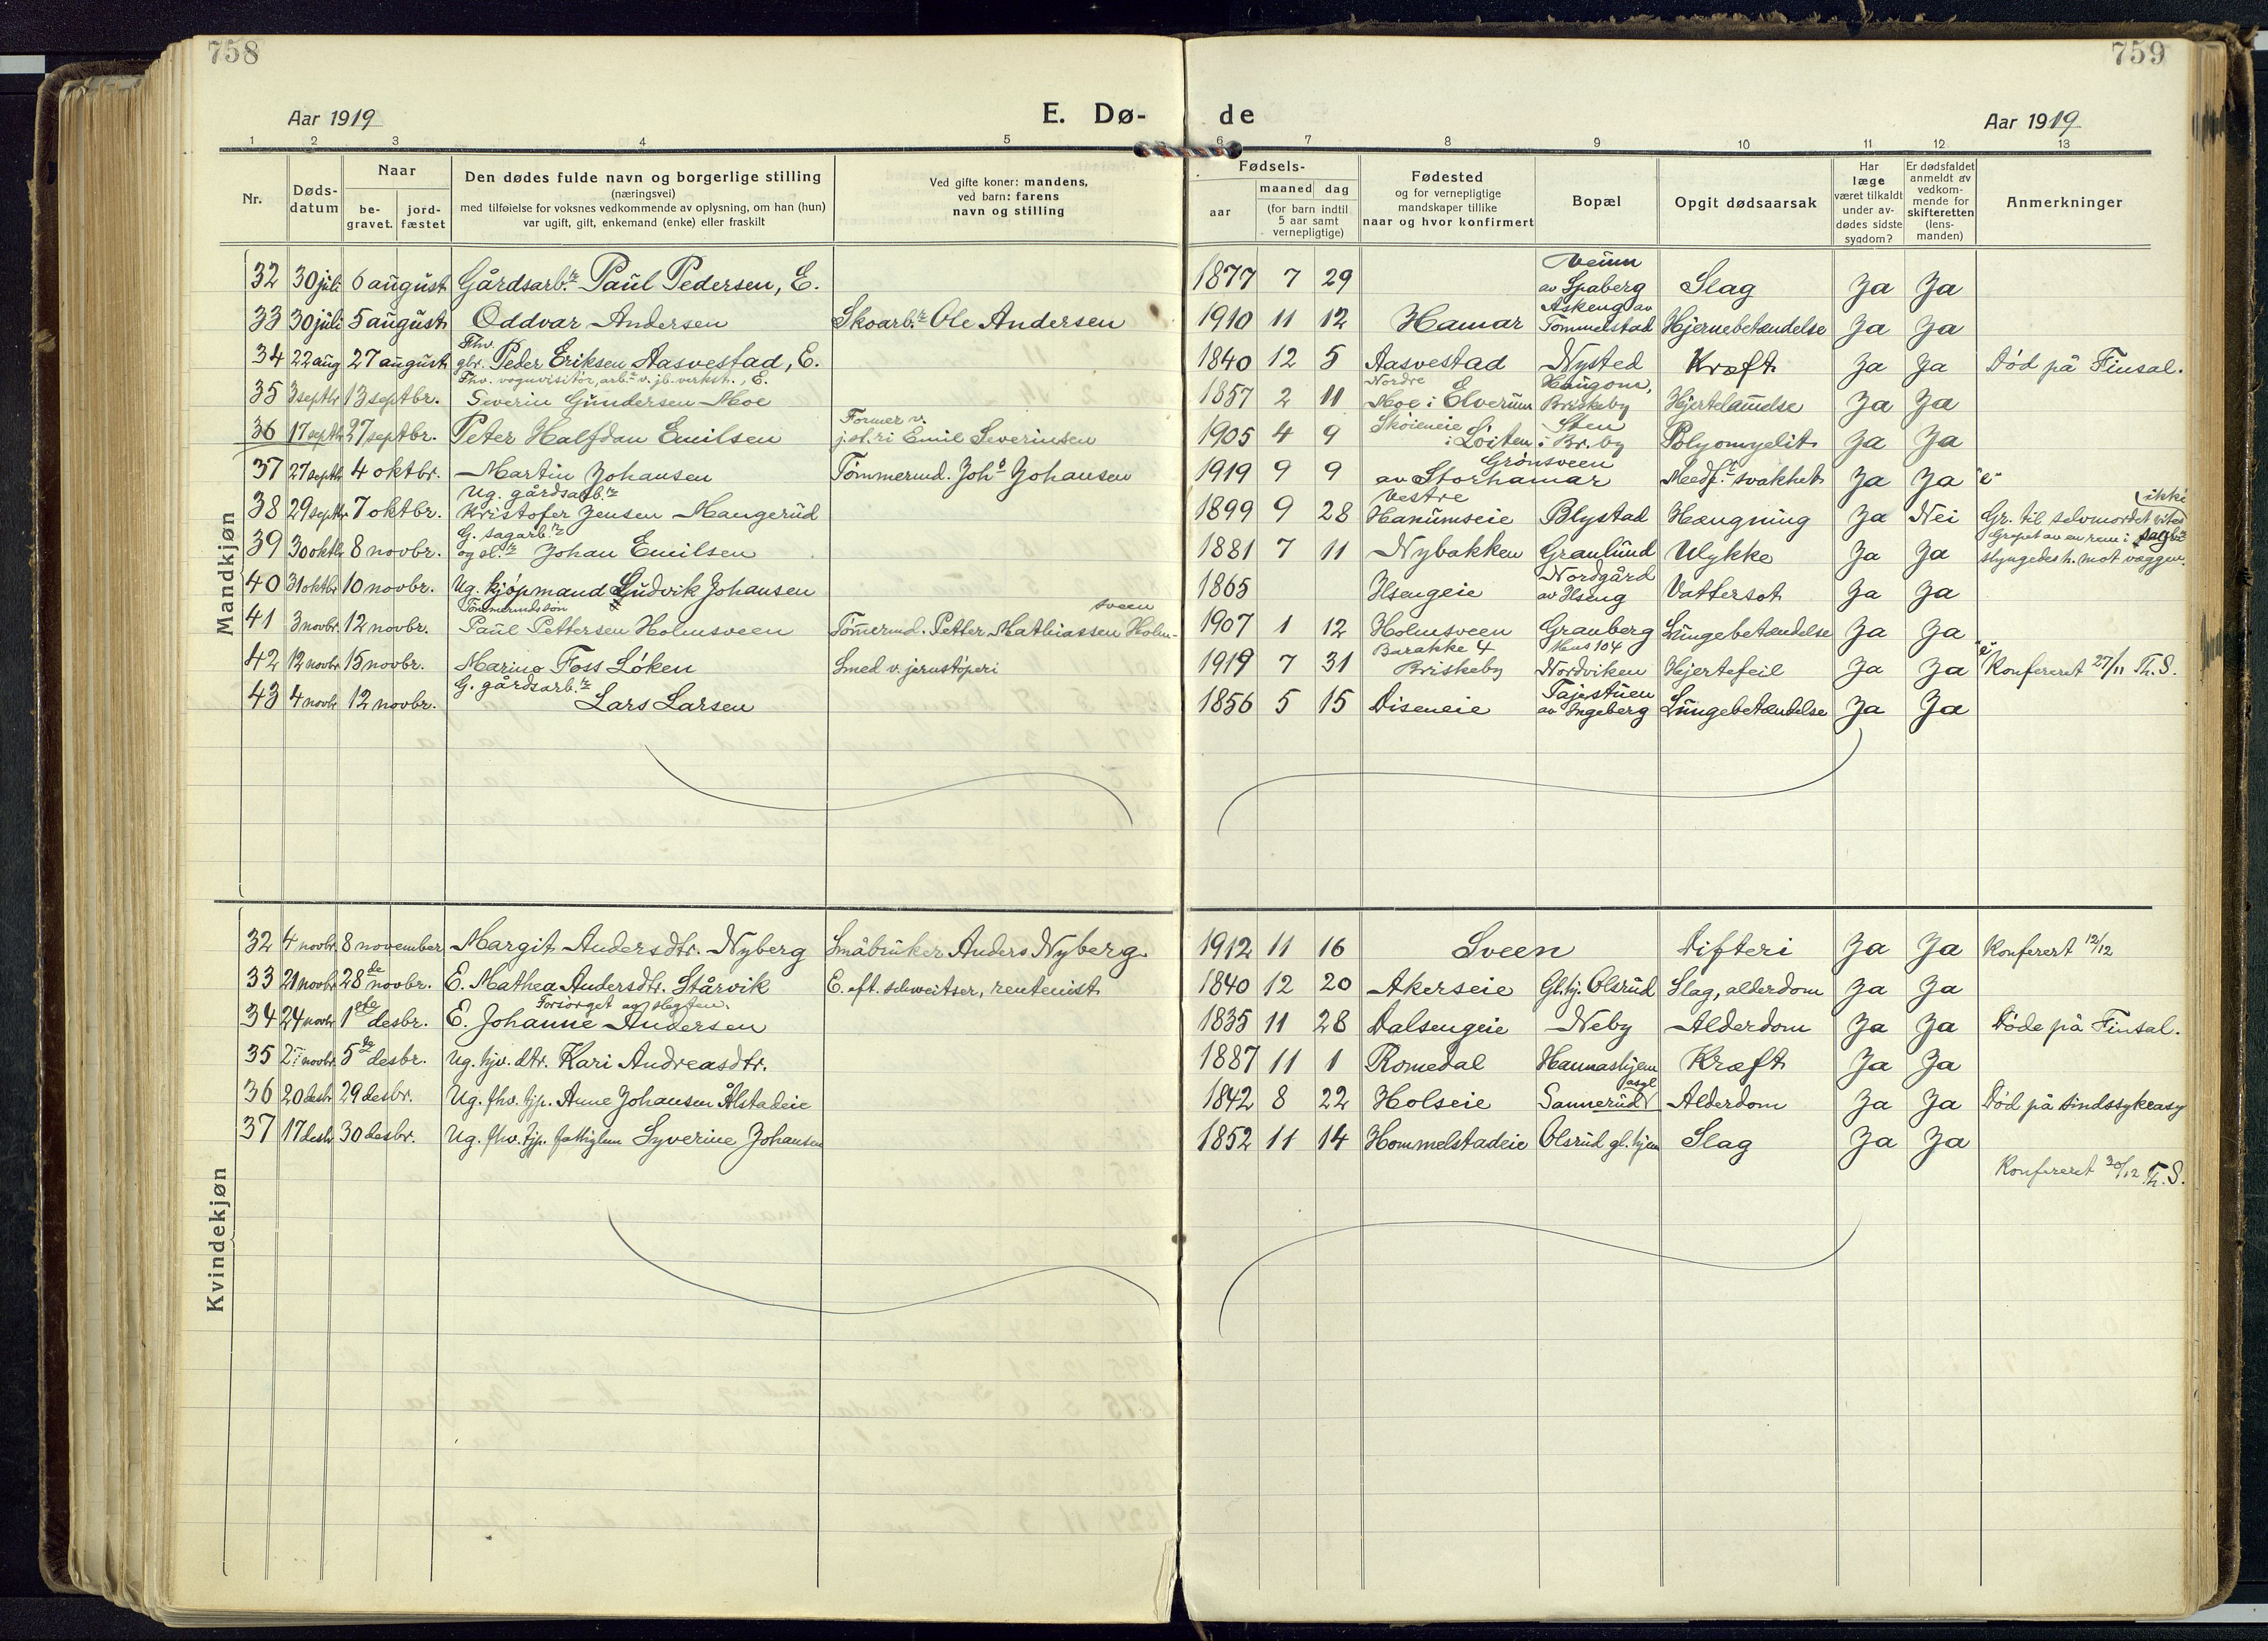 758
759
Aar 1919
E. Dø-
de
Aar 1919
1 2 3 4 5 6 7 8 9 10 11 12 13
Nr.
Døds-
datum
Naar
be-
gravet.
jord-
fæstet
Den dødes fulde navn og borgerlige stilling
(næringsvei)
med tilføielse for voksnes vedkommende av oplysning, om han (hun)
var ugift, gift, enkemand (enke) eller fraskilt
Ved gifte koner: mandens,
ved barn: farens
navn og stilling
Fødsels-
aar
maaned dag
(for barn indtil
5 aar samt
vernepligtige)
Fødested
og for vernepligtige
mandskaper tillike
naar og hvor konfirmert
Bopæl
Opgit dødsaarsak
Har
læge
været tilkaldt
under av-
dødes sidste
sygdom?
Er dødsfaldet
anmeldt av
vedkom-
mende for
skifteretten
(lens-
manden)
Anmerkninger
Mandkjøn
32 30 juli 6 august Gårdsarb.r Paul Pedersen, E. 1877 7 29 av Spaberg Slag Ja Ja
33 30 juli 5 august Oddvar Andersen Skoarb.r Ole Andersen 1910 11 12 Hamar Askeng av Tommelstad Hjernebetændelse Ja Ja
34 22 aug 27 august Fhv. gbr. Peder Eriksen Aasvestad, E. 1840 12 5 Aasvestad Nysted Kræft Ja Ja Død på Finsal.
35 3 septbr 13 septbr. Fhv. vognvisitør, arb.r v. jb. verkst., E. Severin Gundersen Moe 1857 2 11 Nordre Moe i Elverum Haugom, Briskeby Hjertelammelse Ja Ja
36 17 septbr 27 septbr. Peter Halfdan Emilsen Former v. j.st.ri Emil Severinsen 1905 4 9 Skøieneie i Løiten Sten i Br.by Polyomyelit Ja Ja
37 27 septbr 4 oktbr. Martin Johansen Tømmermd. Joh.s Johansen 1919 9 9 Grønsveen av Storhamar Medf. svakhet Ja Ja "e"
38 29 septbr 7 oktbr. Ug. gårdsarb.r Kristofer Jensen Mangerud 1899 9 28 Vestre Hanumseie Blystad Hængning Ja Nei Gr. til selvmordet vites ikke
39 30 oktbr 8 novbr. G. sagarb.r og sl.r Johan Emilsen 1881 7 11 Nybakken Granlund Ulykke Ja Ja Grepet av en rem i sagbr. slyngedes h. mot væggen.
40 31 oktbr 10 novbr. Ug. kjøpmand Ludvik Johansen 1865 Ilsengeie Nordgård av Ilseng Vattersot Ja Ja
41 3 novbr. 12 novbr. Tømmermdssøn Paul Pettersen Holmsveen Tømermd. Petter Mathiassen Holm- sveen 1907 1 12 Holmsveen Granberg Lungebetændelse Ja Ja
42 12 novbr 15 novbr. Marino Foss Løken Smed v. jernstøperi 1919 7 31 Barakke 4 Briskeby Hus 104 Nordviken Hjertefeil Ja Ja "e" Konfereret 27/11 Th. S.
43 4 novbr 12 novbr. G. gårdsarb.r Lars Larsen 1856 5 15 Diseneie Tajestuen av Ingeberg Lungebetændelse Ja Ja
Kvindekjøn
32 4 novbr. 8 november Margit Andersdtr. Nyberg Småbruker Anders Nyberg 1912 11 16 Sveen Difteri Ja Ja Konferert 12/12
33 21 novbr 28de novbr. E. Mathea Andersdtr. Stårvik E. eft. schweitser, rentenist 1840 12 20 Akerseie Gl.hj. Olsrud Slag, alderdom Ja Ja
34 24 novbr 1ste desbr. Forsørget av slegten. E. Johanne Andersen 1835 11 28 Dalsengeie Neby Alderdom Ja Ja Døde på Finsal.
35 27 novbr 5te desbr. Ug. hjv. dtr. Kari Andreasdtr. 1887 11 1 Romedal Hannashjem Kræft Ja Ja
36 20 desbr 29 desbr. Ug. fhv. tjp. Anne Johansen Ålstadeie 1842 8 22 Holseie Sannerud asyl Alderdom Ja Ja Død på sindssykeasy
37 17 desbr 30 desbr. Ug. fhv. tjp. fattiglem Syverine Johansen 1852 11 14 Hommelstadeie Olsrud gl. hjem Slag Ja Ja
Konfereret 30/12 Th. S.